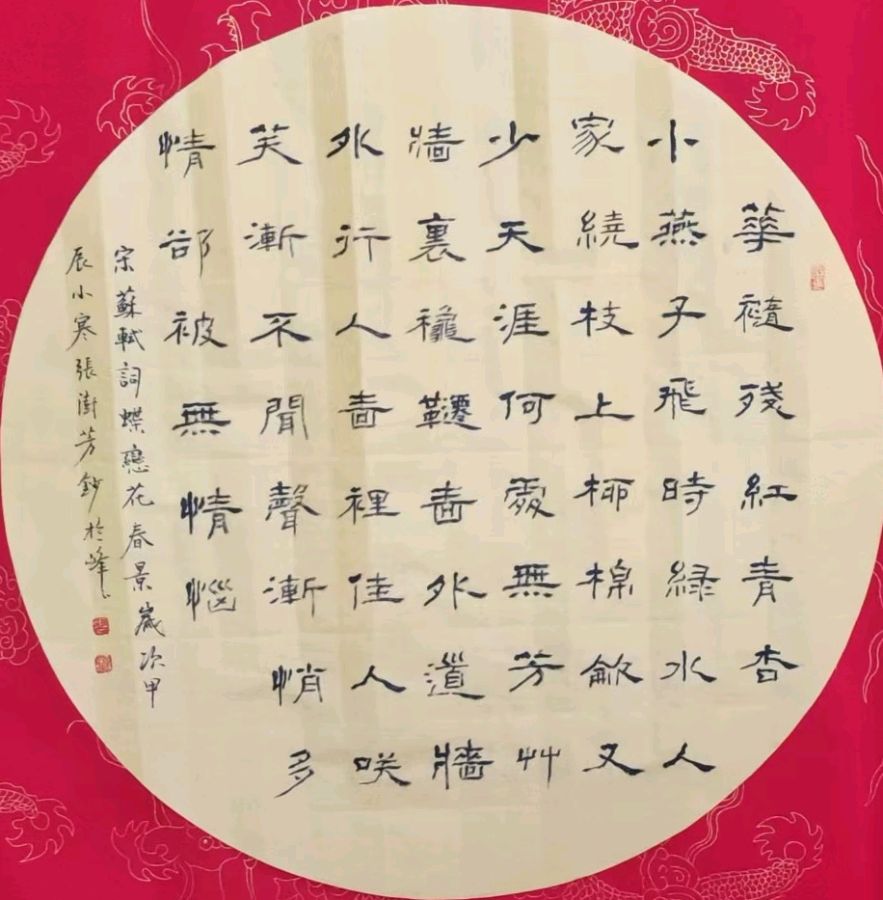 華褪殘紅青杏
小燕子飛時緑水人
家繞枝上柳棉龡又
少天涯何處無芳艸
牆裏穐韆嗇外道牆
外行人嗇裡佳人咲
笑漸不聞聲漸悄多
情卻被無情惱
宋蘇軾詞蝶戀花春景歲次甲
辰小寒張澍芳鈔於峰